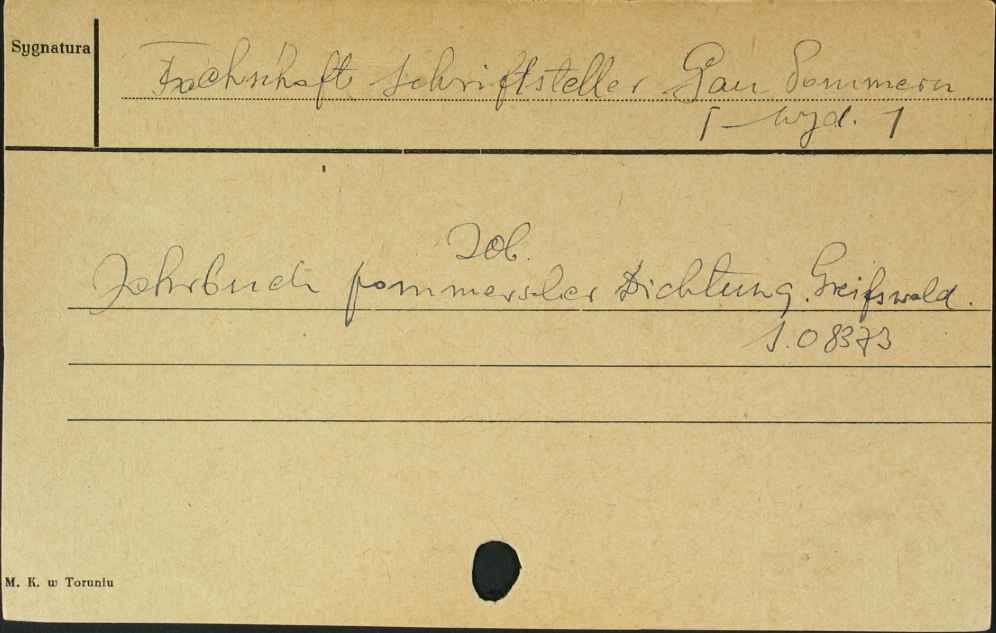 Sygnatura
Fachschaft Schriftsteller Gau Pommern
[ - wyd. ]
Zob.
Jahrbuch pommerscher Dichtung. Greifswald.
S. 08373
M. K. w Toruniu